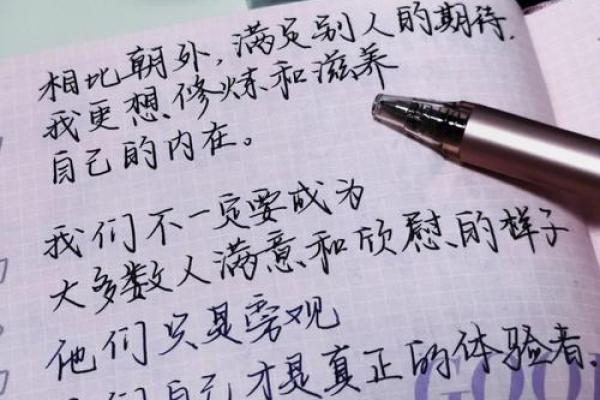 相比朝外,满足别人的期待,
我更想修炼和滋养
自己的内在。
我们不一定要成为
大多数人满意和欣慰的样子
他们只是旁观
们自己才是真正的体验者.
GOO